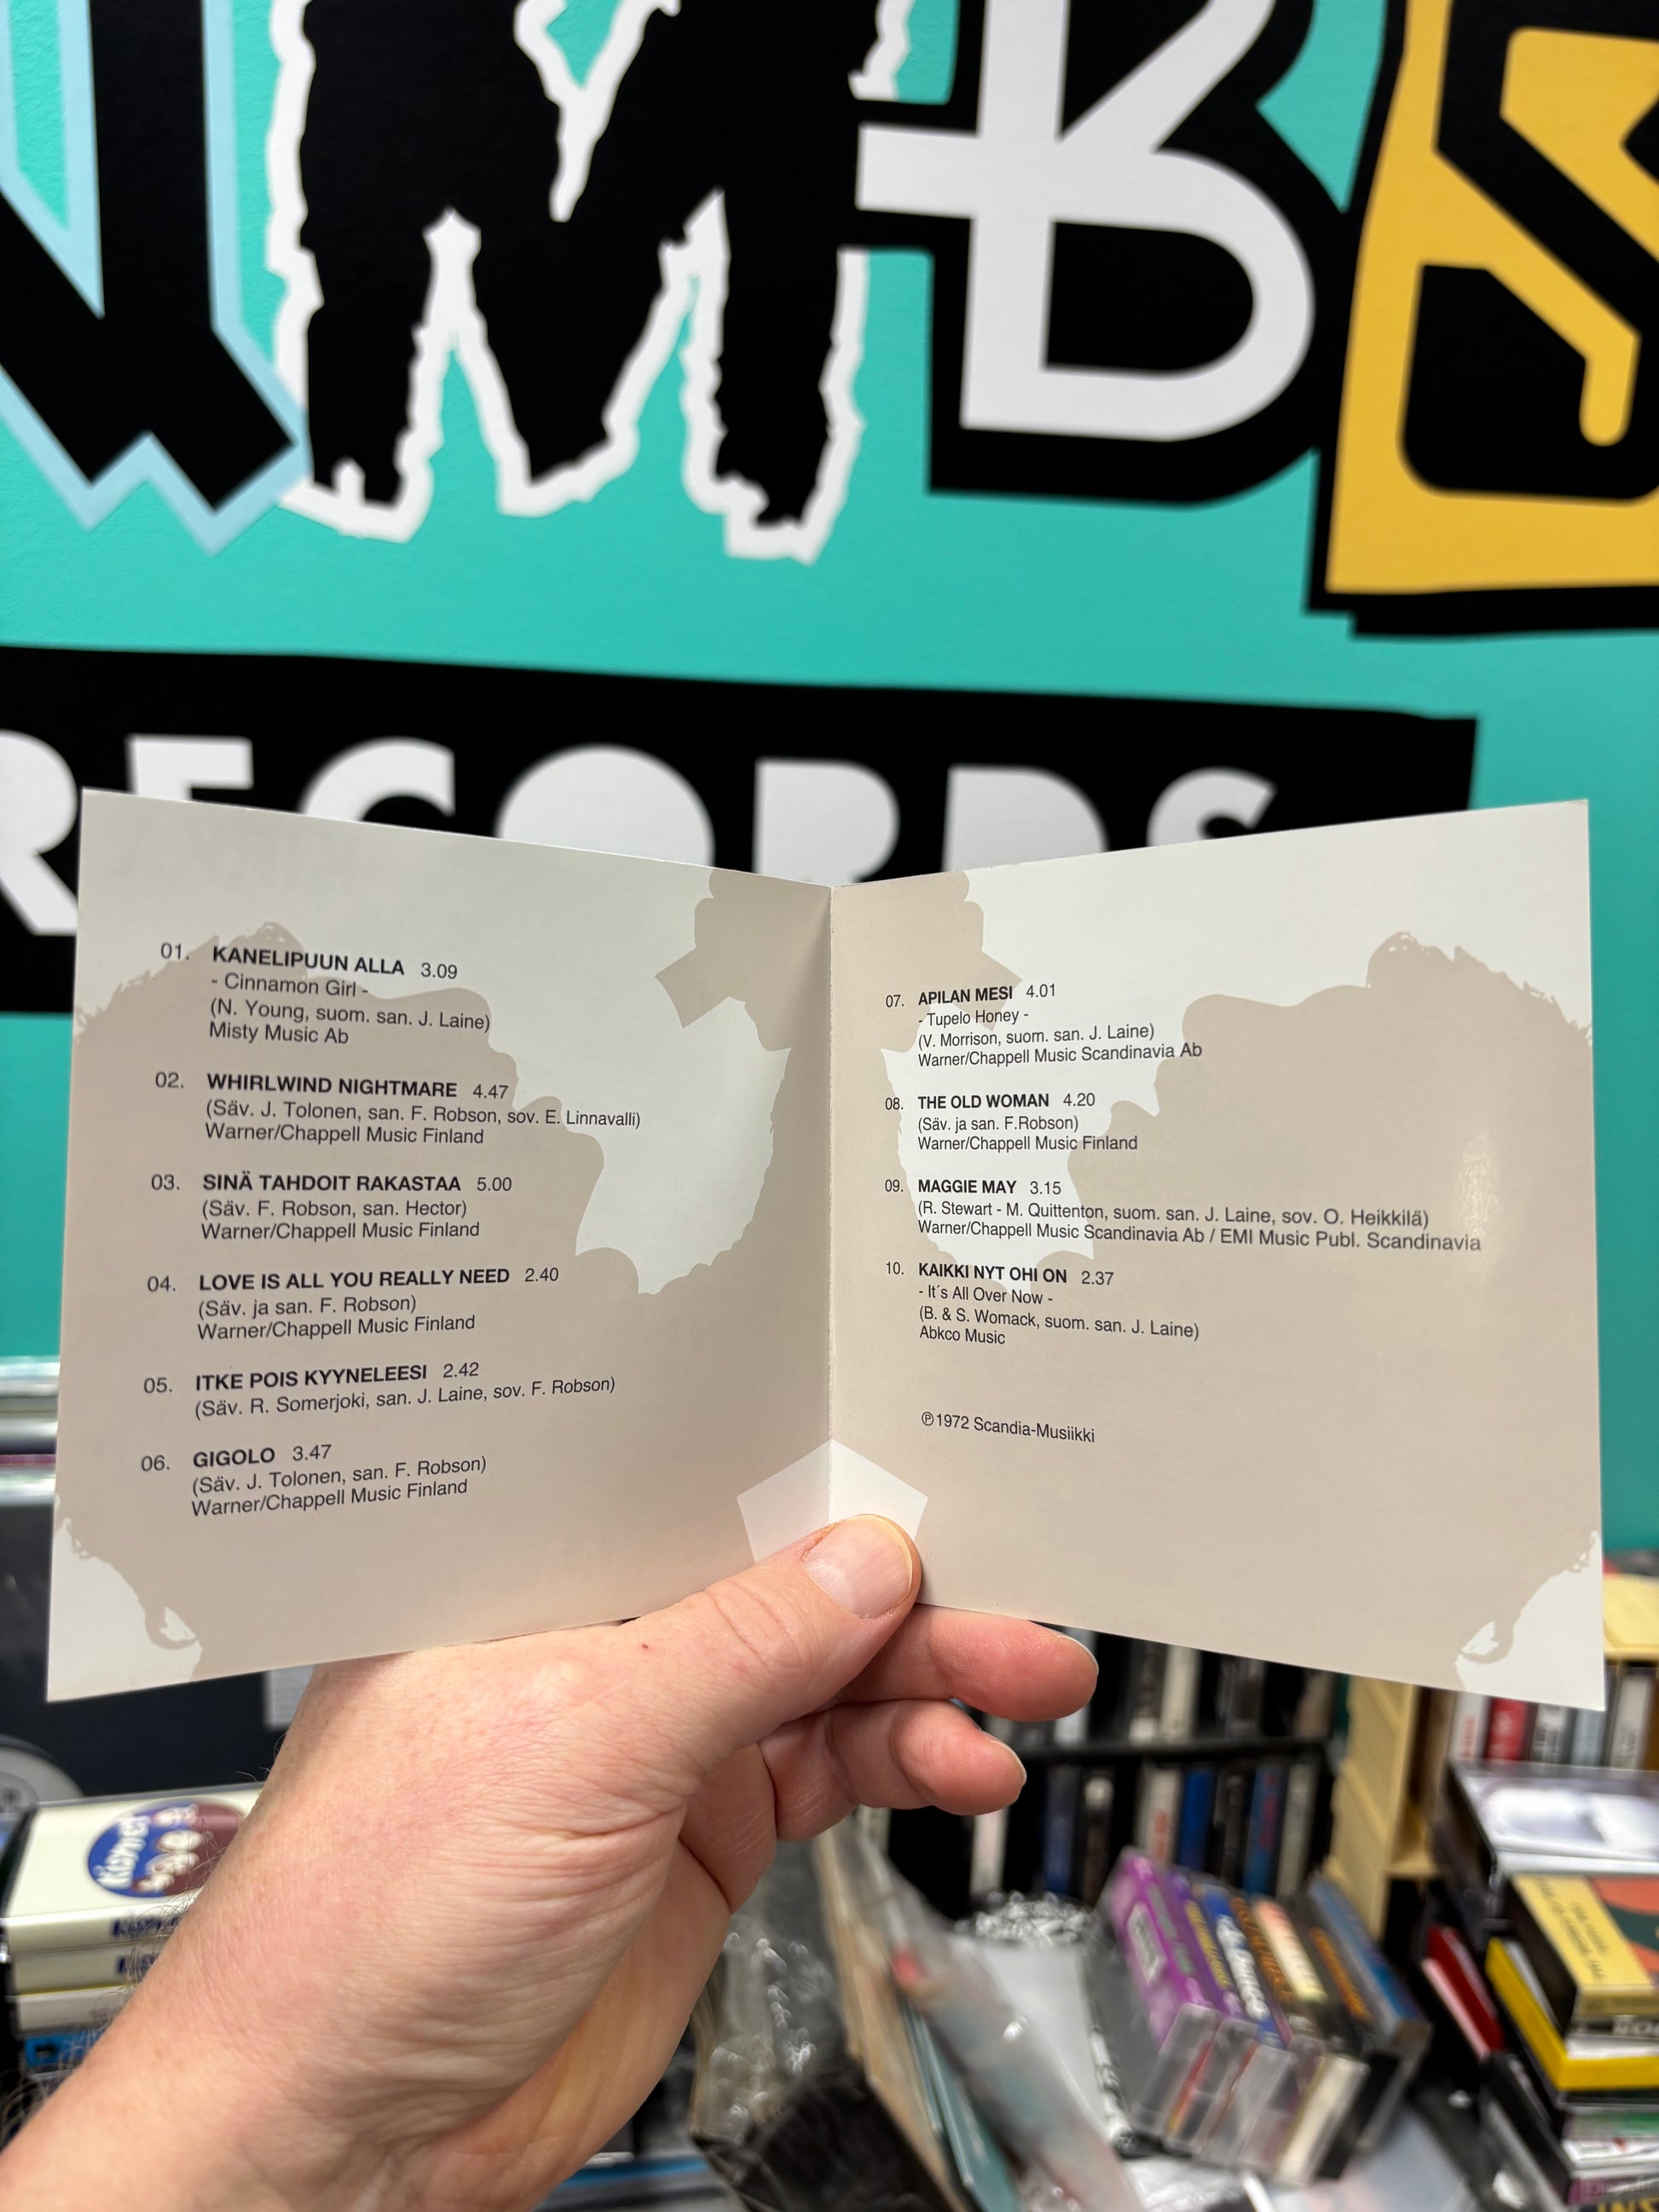 RECORDS
01. KANELIPUUN ALLA 3.09
- Cinnamon Girl -
(N. Young, suom. san. J. Laine)
Misty Music Ab
02. WHIRLWIND NIGHTMARE 4.47
(Säv. J. Tolonen, san. F. Robson, sov. E. Linnavalli)
Warner/Chappell Music Finland
03. SINÄ TAHDOIT RAKASTAA 5.00
(Säv. F. Robson, san. Hector)
Warner/Chappell Music Finland
04. LOVE IS ALL YOU REALLY NEED 2.40
(Säv. ja san. F. Robson)
Warner/Chappell Music Finland
05. ITKE POIS KYYNELEESI 2.42
(Säv. R. Somerjoki, san. J. Laine, sov. F. Robson)
06. GIGOLO 3.47
(Säv. J. Tolonen, san. F. Robson)
Warner/Chappell Music Finland
07. APILAN MESI 4.01
- Tupelo Honey -
(V. Morrison, suom. san. J. Laine)
Warner/Chappell Music Scandinavia Ab
08. THE OLD WOMAN 4.20
(Säv. ja san. F.Robson)
Warner/Chappell Music Finland
09. MAGGIE MAY 3.15
(R. Stewart - M. Quittenton, suom. san. J. Laine, sov. O. Heikkilä)
Warner/Chappell Music Scandinavia Ab / EMI Music Publ. Scandinavia
10. KAIKKI NYT OHI ON 2.37
- It´s All Over Now -
(B. & S. Womack, suom. san. J. Laine)
Abkco Music
℗1972 Scandia-Musiikki